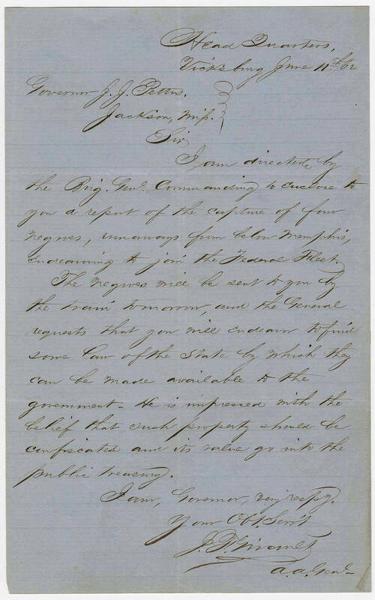 Head Quarters,
Vicksburg June 11th /62
Governor J. J. Pettus,
Jackson, Mip.
Sir
I am directed by
the Brig. Genl. Commanding to enclose to
you a report of the capture of four
negroes, runaways from below Memphis,
endeavoring to join the Federal Fleet.
The negroes will be sent to you by
the train tomorrow, and the General
requests that you will endeavor to find
some law of the State by which they
can be made available to the
government. He is impressed with the
belief that such property should be
confiscated and its value go into the
public treasury.
I am, Governor, very respy.
Your Obt. Servt
J. F.
a. a. Genl